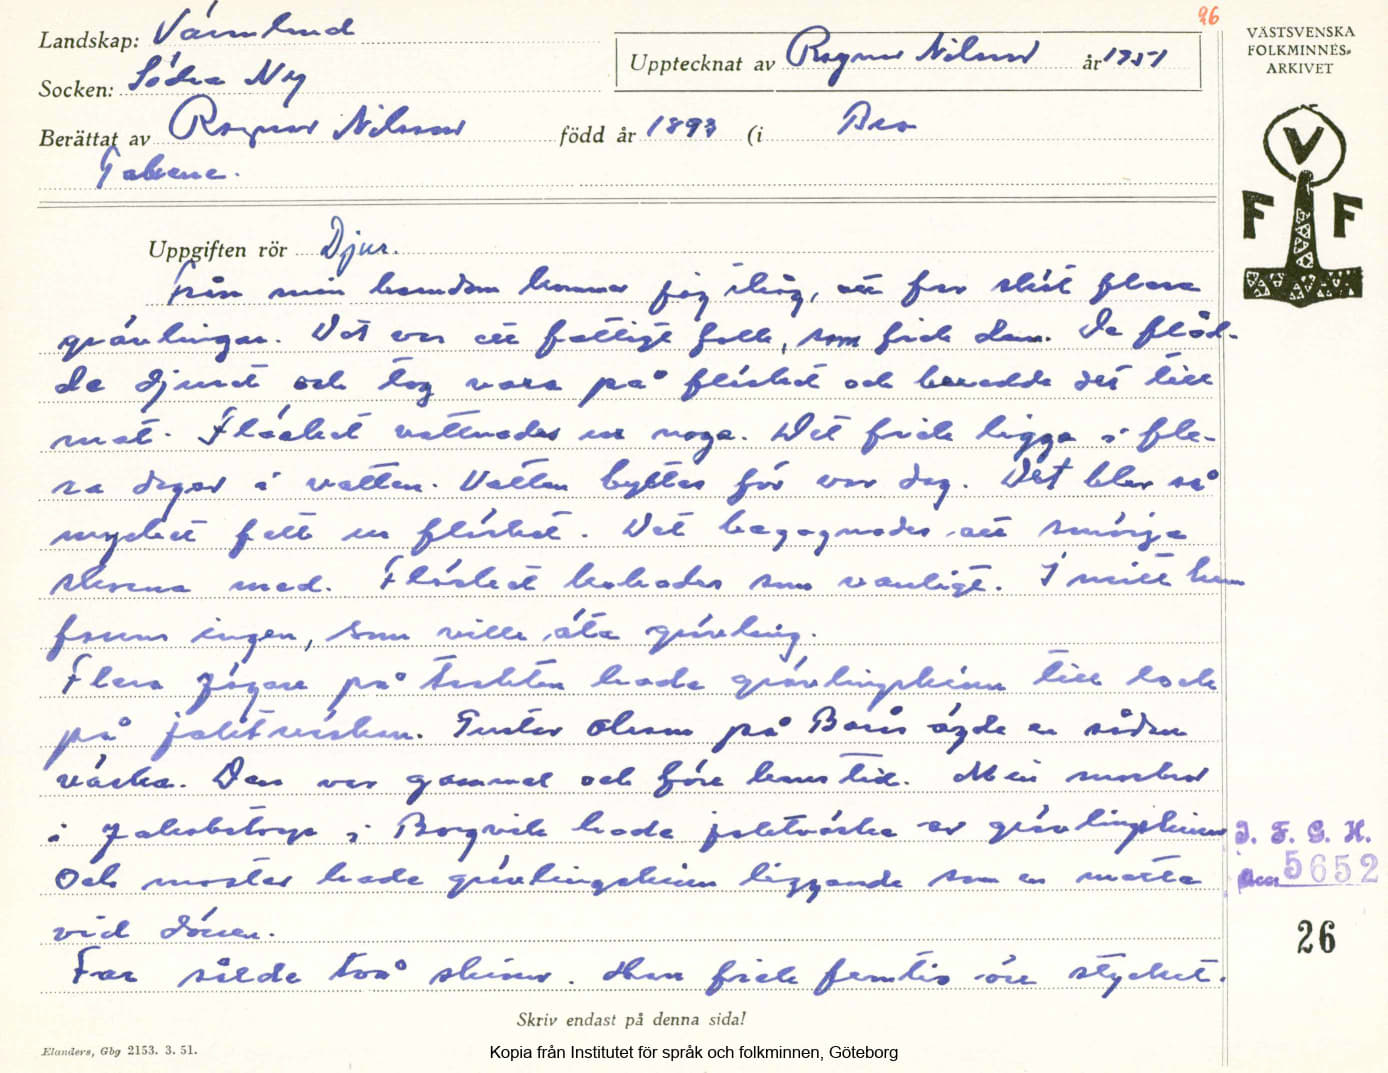 96
Landskap: Värmland
Upptecknat av Ragnar Nilsson år 1951
Socken: Södra Ny
Berättat av Ragnar Nilsson född år 1893 (i Bro
Takene.
VÄSTSVENSKA
FOLKMINNES-
ARKIVET
V
F F
Uppgiften rör Djur.
Från min barndom kommer jag ihåg, att far sköt flera
grävlingar. Det var ett fattigt folk, som fick dem. De flåd-
de djuret och tog vara på fläsket och beredde det till
mat. Fläsket vattnades ur noga. Det fick ligga i fle-
ra dagar i vatten. Vatten byttes för var dag. Det blev så
mycket fett ur fläsket. Det begagnades att smörja
skorna med. Fläsket kokades som vanligt. I mitt hem
fanns ingen, som ville äta grävling.
Flera jägare på trakten hade grävlingskinn till lock
på jaktväskan. Gustav Olsson på Borås ägde en sådan
väska. Den var gammal och före hans tid. Min morbror
i Jakobstorp i Borgvik hade jaktväska av grävlingskinn
Och moster hade grävlingskinn liggande som en matta
vid dörren.
Far sålde två skinn. Han fick femtio öre stycket.
I. F. G. H.
Acc 5652
26
Skriv endast på denna sida!
Elanders, Gbg 2153. 3. 51.
Kopia från Institutet för språk och folkminnen, Göteborg